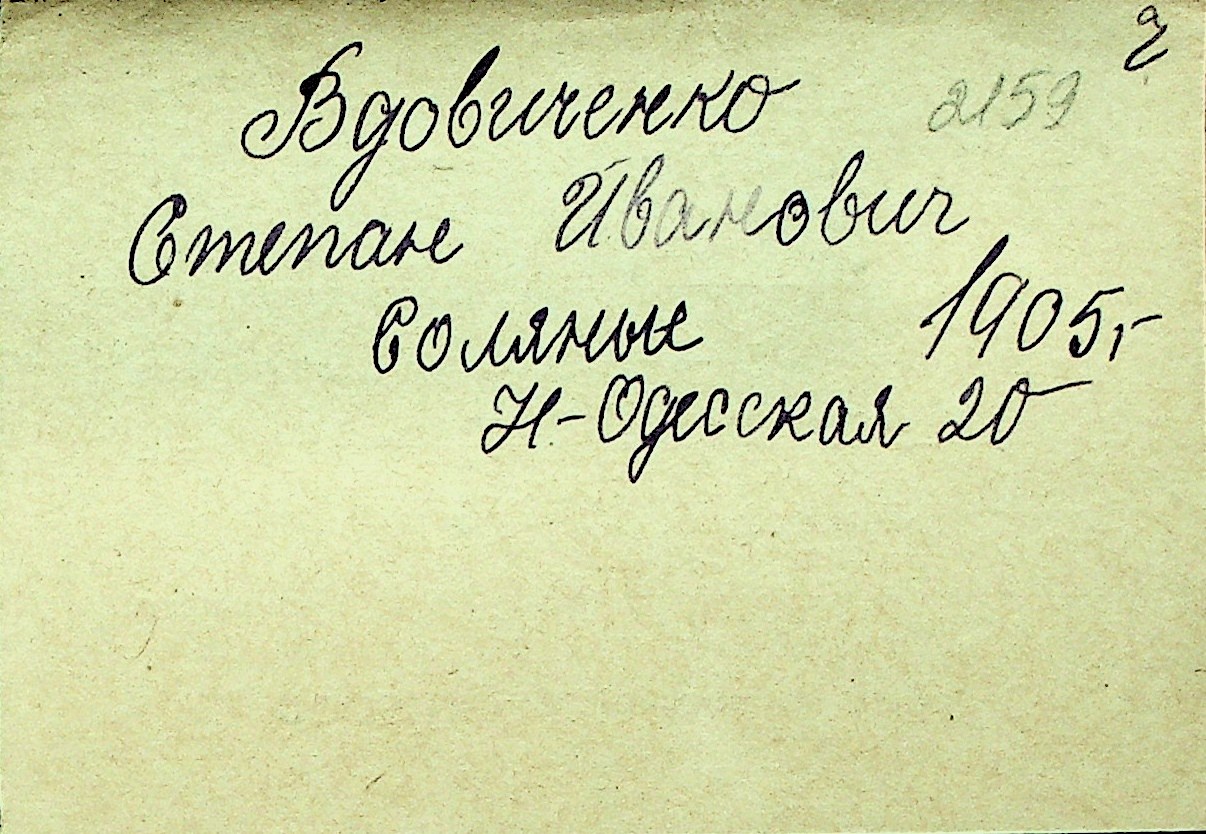 Вдовиченко 2159
Степан Иванович
Соляные 1905,-
Н-Одесская 20